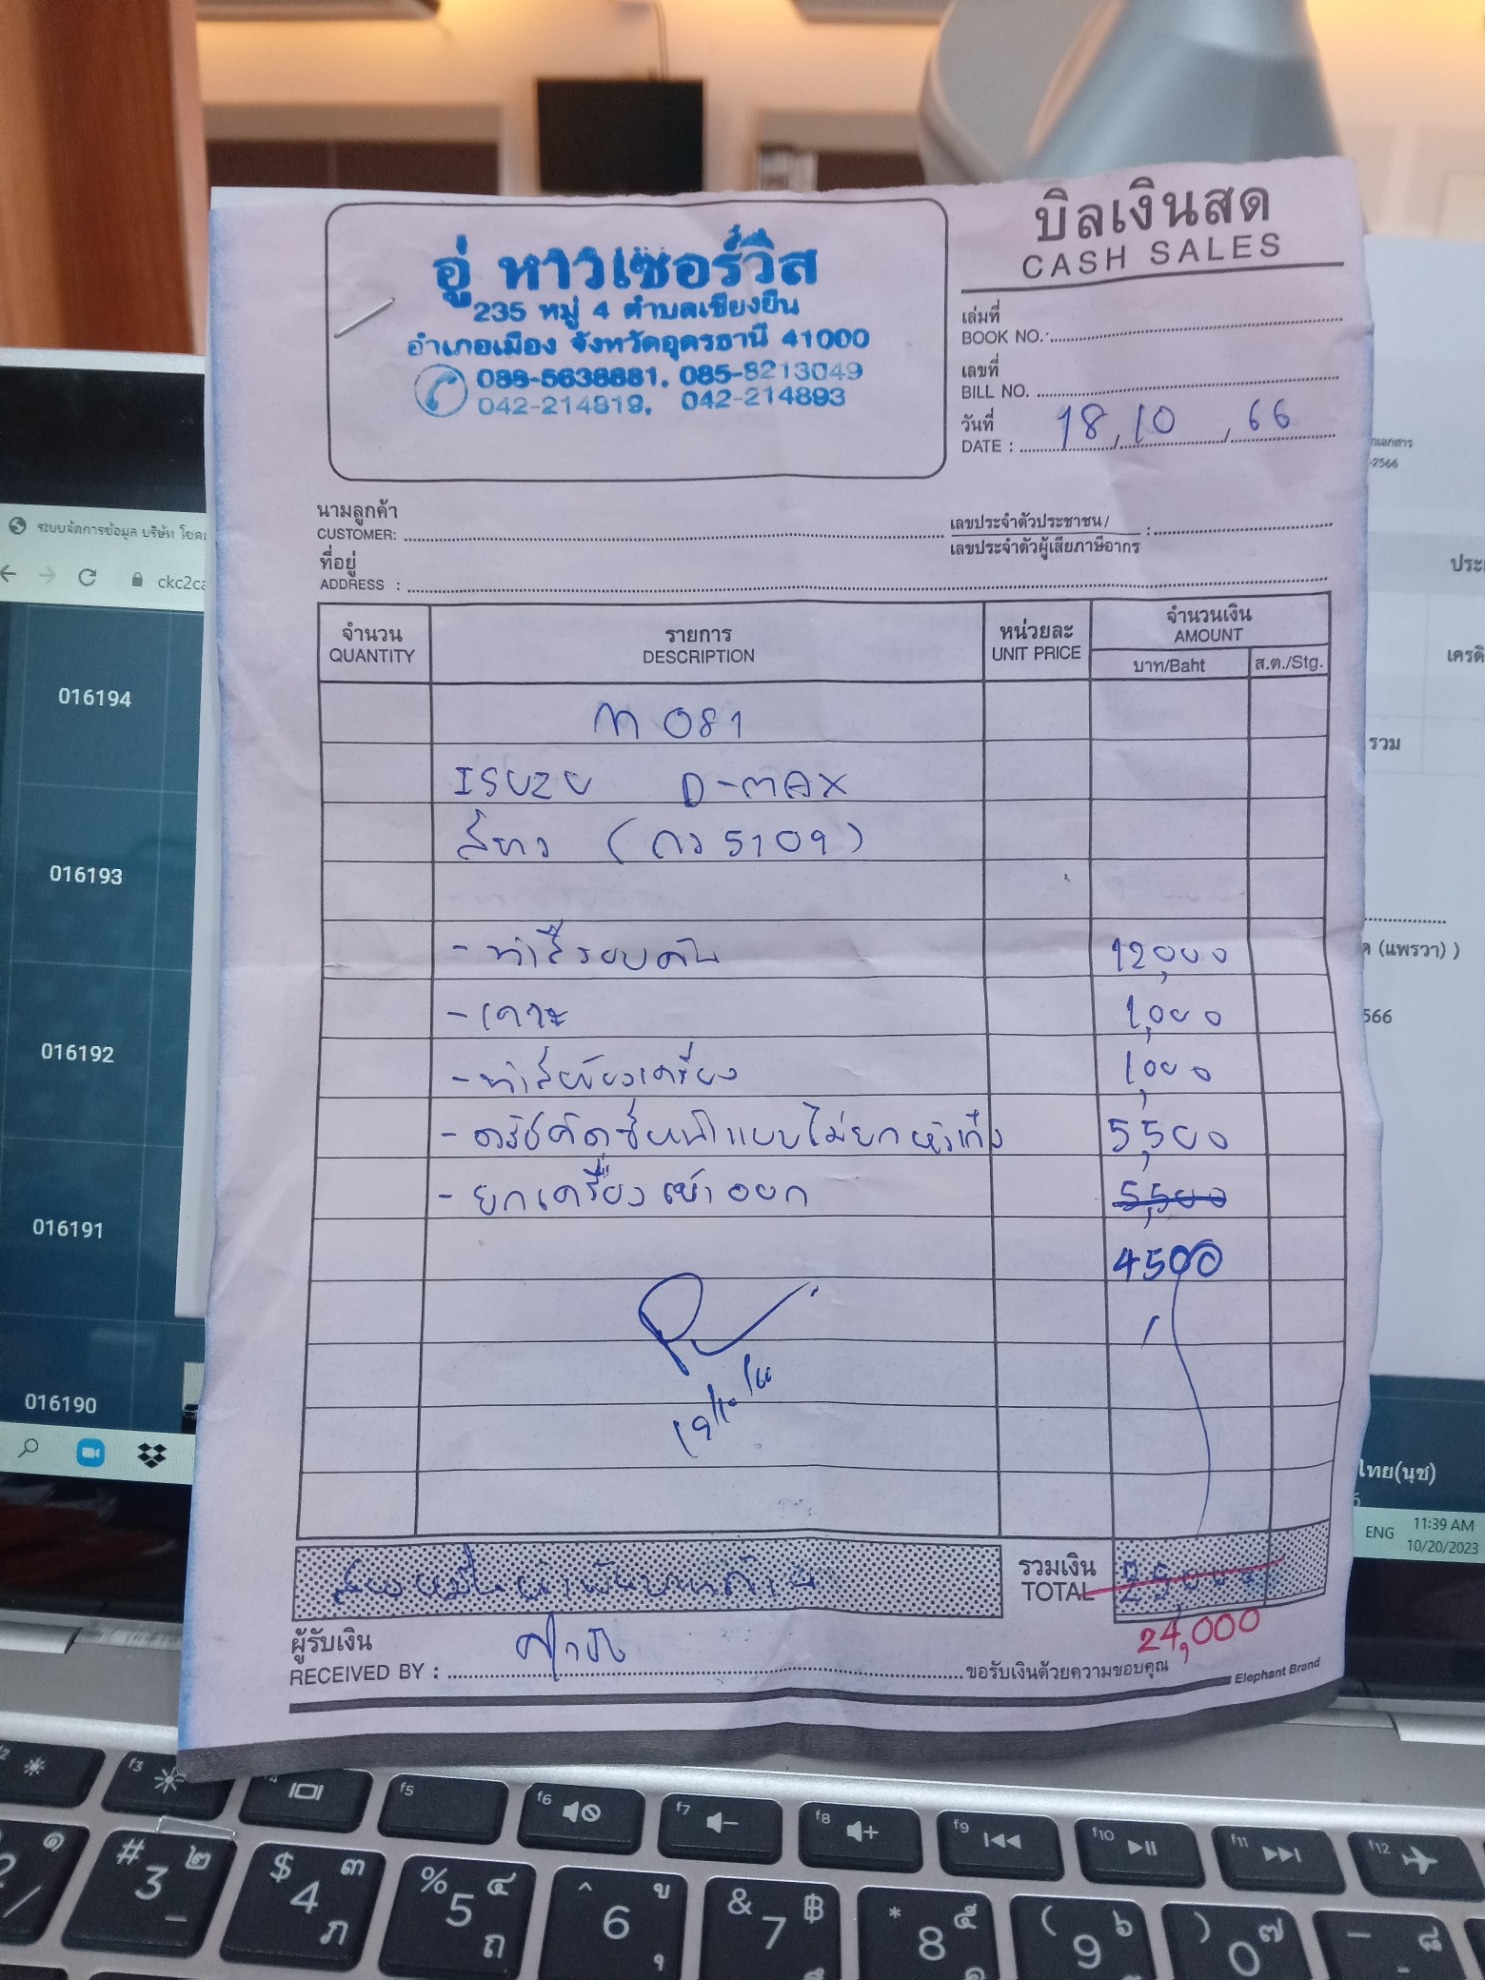 บิลเงินสด
CASH SALES
อู่ หาวเซอร์วิส
235 หมู่ 4 ตำบลเชียงยืน
อำเภอเมือง จังหวัดอุดรธานี 41000
088-5638881, 085-8213049
042-214819, 042-214893
เล่มที่
BOOK NO. :
เลขที่
BILL NO.
วันที่
DATE : 18, 10, 66
นามลูกค้า
CUSTOMER:
เลขประจำตัวประชาชน/
เลขประจำตัวผู้เสียภาษีอากร :
ที่อยู่
ADDRESS :
จำนวน รายการ หน่วยละ จำนวนเงิน
QUANTITY DESCRIPTION UNIT PRICE AMOUNT
บาท/Baht ส.ต./Stg.
M 081
ISUZU D-MAX
สีขาว ( 5109)
- ทำสีรอบคัน 12,000
- เคาะ 1,000
- ทำสีห้องเครื่อง 1,000
- คัดซีหน้าแบบไม่ยกหัวเก๋ง 5,500
- ยกเครื่องเข้าออก 5,500
4500
19/10/66
รวมเงิน
TOTAL 25,000
24,000
ผู้รับเงิน
RECEIVED BY :
ขอรับเงินด้วยความขอบคุณ
Elephant Brand
ระบบจัดการข้อมูล บริษัท
ckc2ca
016194
016193
016192
016191
016190
-2566
รวม
(แพรวา) )
566
ไทย(นุช)
ENG 11:39 AM
10/20/2023
f3 f5 f6 f7 f8 f9 f10 f11 f12
# 3 ๒ _
$ 4 ๓ ภ
% 5 ๔ ถ
^ 6 ข ุ
& 7 ฿ ึ
* 8 ๕ ค
( 9 ๖ ต
) 0 ๗ จ